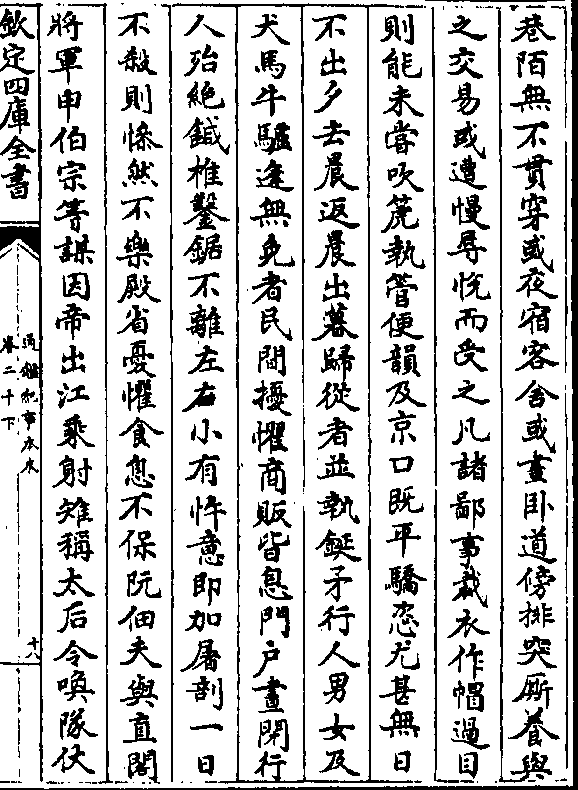 巷陌無不貫穿或夜宿客舍或晝卧道傍排突厮養與
之交易或遭慢辱恱而受之凡諸鄙事裁衣作帽過目
則能未嘗吹篪執管便韻及京口既平驕恣尤甚無日
不出夕去晨返晨出暮歸從者並執鋋矛行人男女及
犬馬牛驢逢無免者民間擾懼商販皆息門户晝閉行
人殆絶鍼椎鑿鋸不離左右小有忤意即加屠剖一日
不殺則慘然不樂殿省憂懼食息不保阮佃夫與直閤
將軍申伯宗等謀因帝出江乘射雉稱太后令喚隊仗
欽定四庫全書
通鑑紀事本末
卷二十下
十八